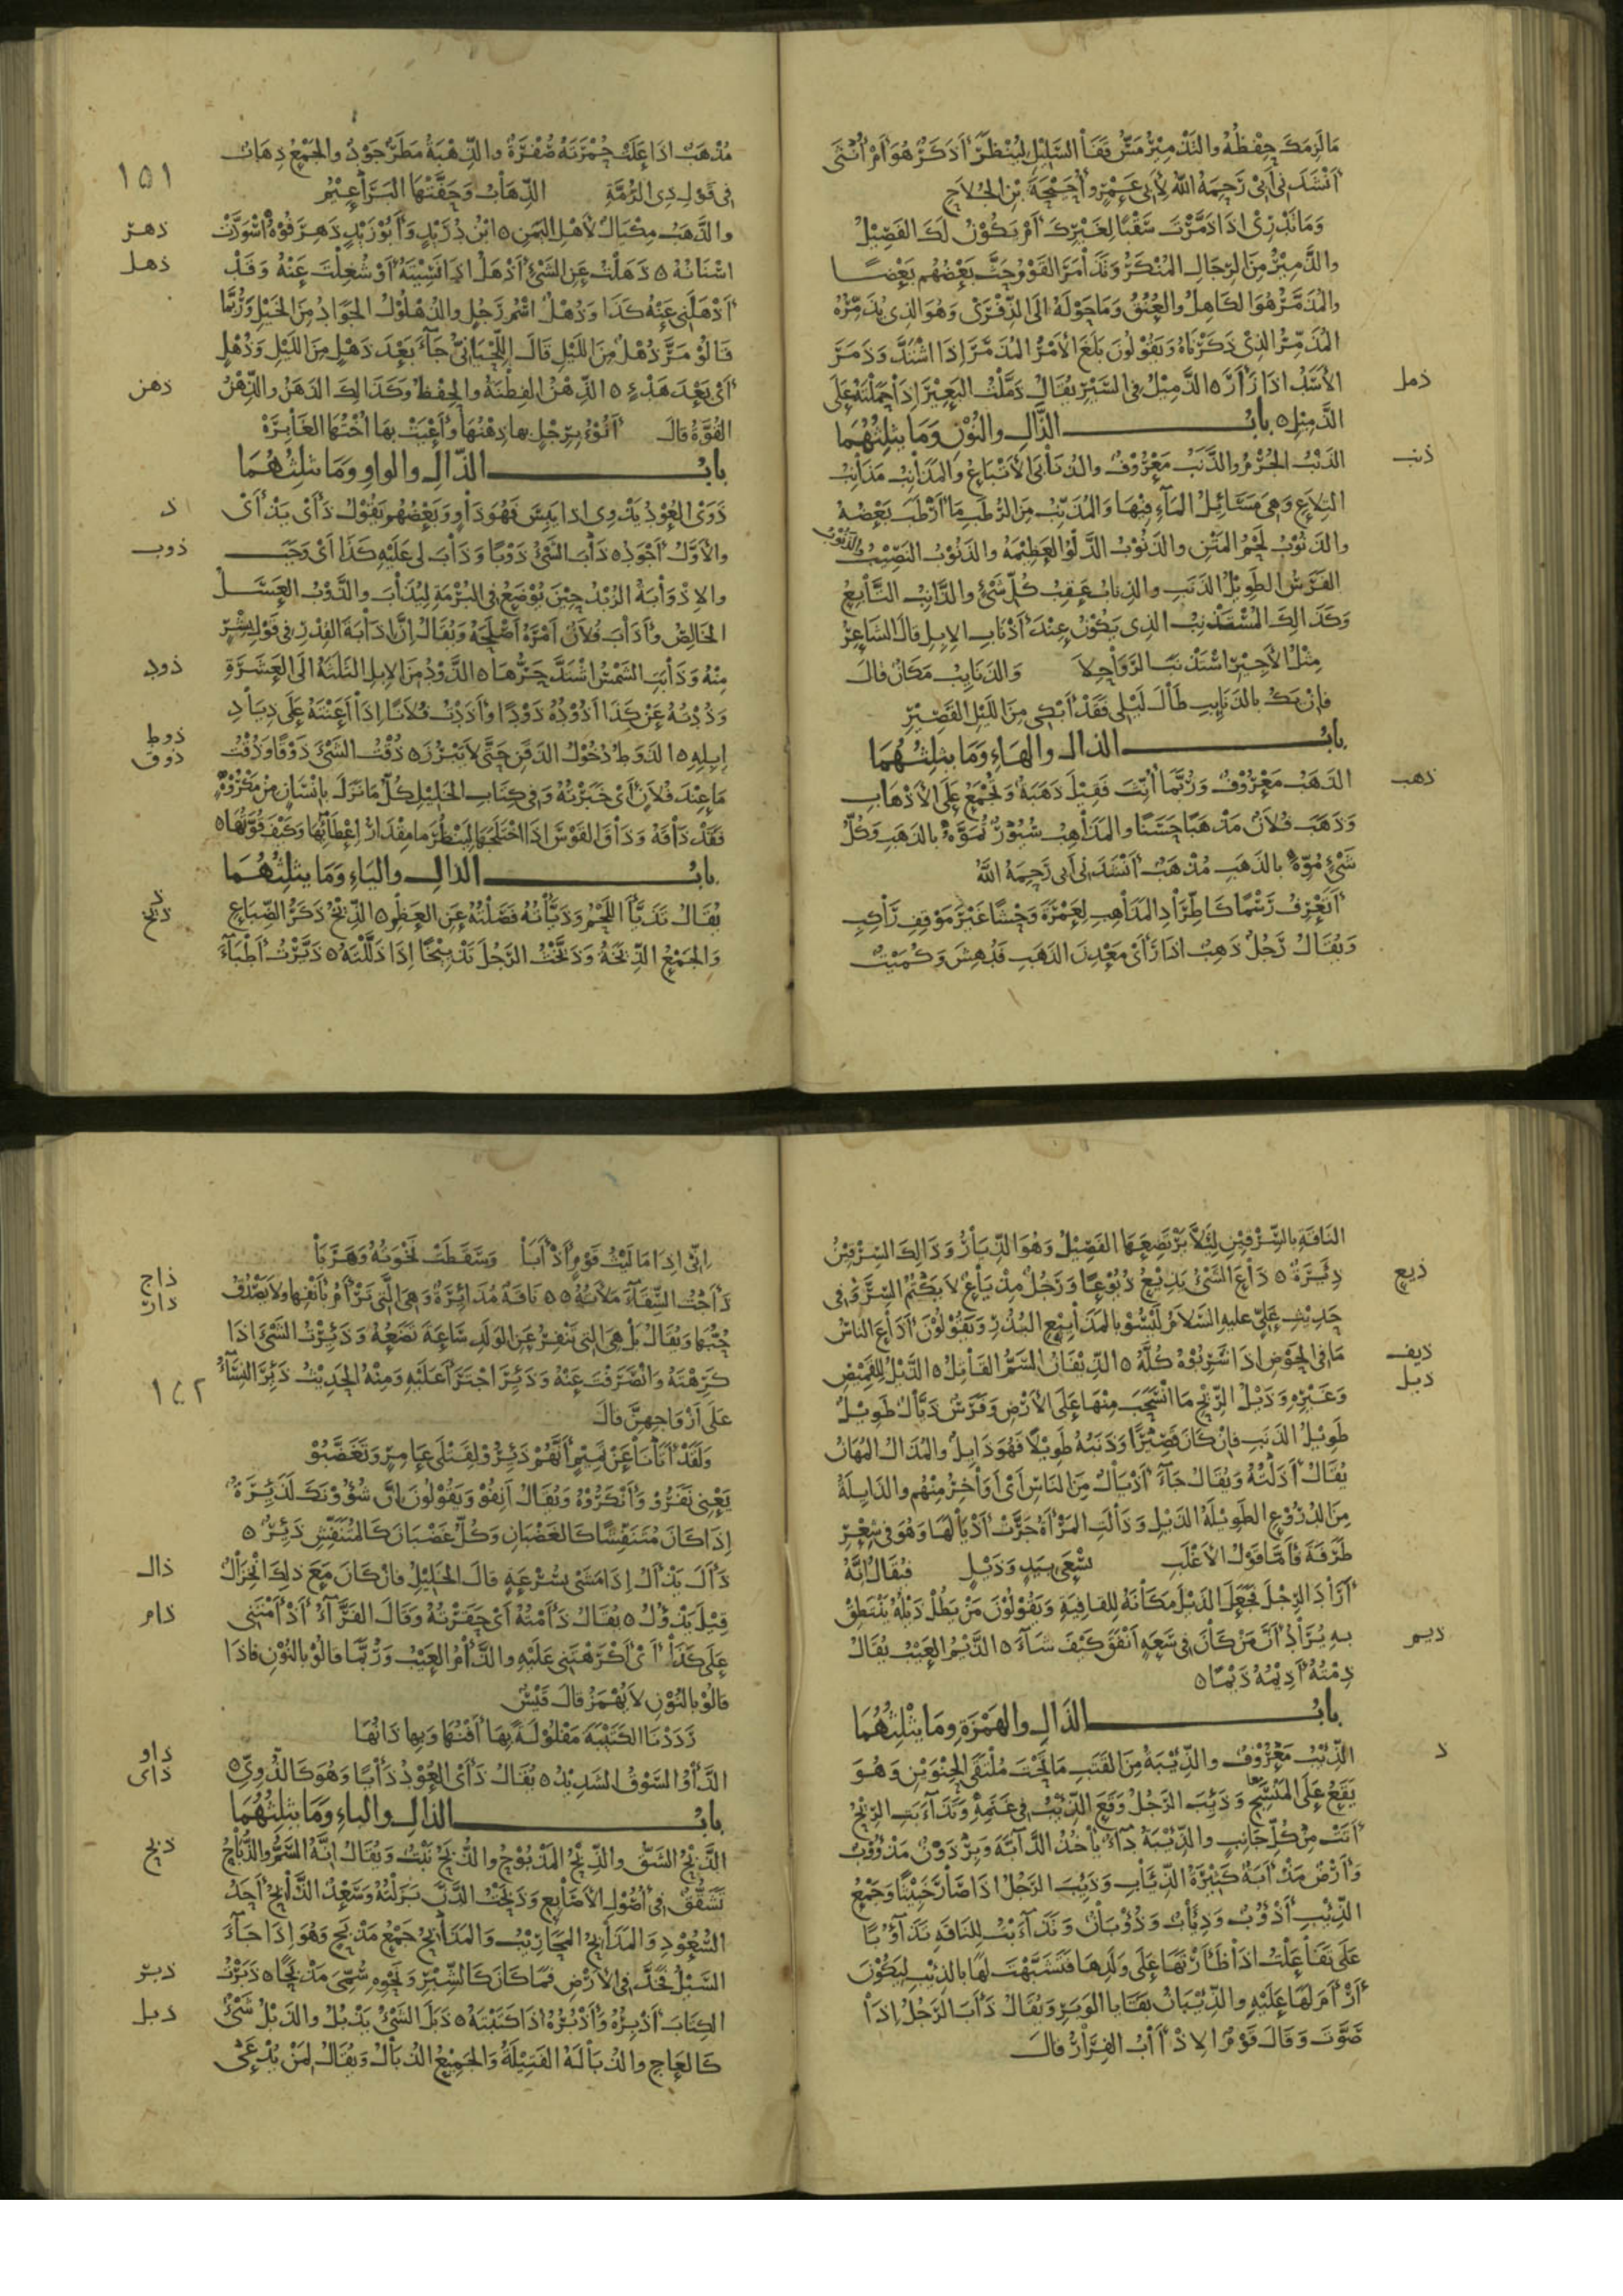 مَا لَزِمَكَ حِفْظُهُ والتَذْمِيْرُ مَسُّ قَفَا السَّلِيْلِ لِيُنْظَرَ أَذَكَرٌ هُوَ أَمْ أُنْثَى
أَنْشَدَنِي أَبِيْ رَحِمَهُ اللهُ لِأَبِي عَمْرٍو أُحَيْحَةَ بْنِ الجُلاَحِ
وَمَا تَدْرِيْ اذَا ذَمَّرْتَ سَقْبًا لِغَيْرِكَ أَمْ يَكُوْنُ لَكَ الفَصِيْلُ
والذَّمِيْرُ مِنَ الرِّجَالِ المُنْكَرُ وَتَذَامَرَ القَوْمُ حَثَّ بَعْضُهُم بَعْضًا
والمُذَمَّرُ هُوَ الكَاهِلُ والعُنُقُ وَمَا حَوْلَهُ الَى الذِّفْرَى وَهُوَ الذِي يُذَمِّرُهُ
المُذَمِّرُ الذِيْ ذَكَرْنَاهُ وَيَقُوْلُونَ بَلَغَ الأَمْرُ المُذَمَّرَ إِذَا اشْتَدَّ وَذَمَرَ
ذمل
الأَسَدُ اذَا زَأَرَ ه الذَّمِيْلُ فِي السَّيْرِ يُقَالُ ذَمَّلْتُ البَعِيْرَ إِذَا حَمَلْتَهُ عَلَى
الذَّمِيْلِ ه بابُ الذَّالِ والنُوْنِ وَمَا يثلِثُهُمَا
ذنب
الذَنْبُ الجُرْمُ والذَّنَبُ مَعْرُوْفٌ والذُنَابَى الأَتْبَاعُ والمَذَانِبُ مَذَانِبُ
التِلاَعِ وَهِيَ مَسَائِلُ المَاءِ فِيْهَا وَالمُذَنِّبُ مِنَ الرُطَبِ مَا أَرْطَبَ بَعْضُهُ
والذَنُوْبُ لَحْمُ المَتْنِ والذَنُوْبُ الدَّلْوُ العَظِيْمَةُ والذَنُوْبُ النَصِيْبُ والذَنُوْبُ
الفَرَسُ الطَوِيْلُ الذَنَبِ والذِنَابُ عَقِبُ كُلِّ شَيْءٍ والذَّانِبُ التَّابِعُ
وَكَذَالِكَ المُسْتَذْنِبُ الذِي يَكُوْنُ عِنْدَ أَذْنَابِ الإِبِلِ قالَ الشَاعِرُ
مِثْلُ الأَجِيْرِ اسْتَذْنَبَ الرَوَاحِلاَ وَالذَنَايِبُ مَكَانٌ قالَ
فَإِنْ يَكُ بالذَنَايِبِ طَالَ لَيْلِي فَقَدْ أَبْكِي مِنَ اللَيْلِ القَصِيْرِ
بابُ الذالِ والهَاءِ وَمَا يثلِثُهُمَا
ذهب
الذَهَبُ مَعْرُوْفٌ وَرُبَّمَا أُنِّثَ فَقِيْلَ ذَهَبَةٌ وَيُجْمَعُ عَلَى الأَذْهَابِ
وَذَهَبَ فُلاَنٌ مَذْهَبًا حَسَنًا والمَذَاهِبُ سُيُوْرٌ تُمَوَّهُ بالذَهَبِ وَكُلُّ
شَيْءٍ مُوِّهَ بالذَهَبِ مُذْهَبٌ أَنْشَدَنِي أَبِي رَحِمَهُ اللهُ
أَتَعْرِفُ رَسْمًا كَاطِّرَادِ المَذَاهِبِ لِعَمْرَةَ وَحْشًا غَيْرَ مَوْقِفِ رَاكِبِ
وَيُقَالُ رَجُلٌ ذَهِبٌ اذَا رَأَى مَعْدِنَ الذَهَبِ فَدُهِشَ وَكُمَيْتٌ
مُذْهَبٌ اذَا عَلَتْ حُمْرَتَهُ صُفْرَةٌ والذِّهْبَةُ مَطَرٌ جَوْدٌ والجَمْعُ ذِهَابٌ
١٥١
فِي قَوْلِ ذِي الرُمَّةِ الذِّهَابُ وَحَفَّتْهَا البَرَاعِيْمُ
ذهر
والذَّهَبُ مِكْيَالٌ لأَهْلِ اليَمَنِ ه ابْنُ دُرَيْدٍ وَأَبُوْ زَيْدٍ ذَهِرَ فُوْهُ اسْوَدَّتْ
ذهل
اسْنَانُهُ ه ذَهَلْتُ عَنِ الشَيْءِ أَذْهَلُ اذَا نَسِيْتَهُ أَوْ شُغِلْتَ عَنْهُ وَقَدْ
أَذْهَلَنِي عَنْهُ كَذَا وَذُهْلٌ اسْمُ رَجُلٍ والذُهْلُوْلُ الجَوَادُ مِنَ الخَيْلِ وَرُبَّمَا
قَالُوْ مَرَّ ذُهْلٌ مِنَ اللَيْلِ قَالَ اللِّحْيَانِيُّ جَآءَ بَعْدَ ذَهْلٍ مِنَ اللَيْلِ وَدُهْلٍ
ذهن
أَيْ بَعْدَ هَدْءٍ ه الذِّهْنُ الفِطْنَةُ والحِفْظُ وَكَذَالِكَ الذَهَنُ والذِّهْنُ
القُوَّةُ قالَ أَنُوْءُ بِرِجْلٍ بها ذِهْنُهَا وَأَعْيَتْ بِهَا أُخْتُهَا الغَابِرَهْ
بابُ الذّالِ والواوِ وَمَا يثلِثُهُمَا
ذ
ذَوَى العُوْدُ يَذْوِي اذا يَبِسَ فَهُوَ ذَاوٍ وَبَعْضُهُم يَقُوْلُ ذَأَى يَذْأَى
ذوب
والأَوَّلُ أَجْوَدُ ه ذَابَ الشَيْءُ ذَوْبًا وَذَابَ لِي عَلَيْهِ كَذَا أَيْ وَجَبَ
والإِذْوَابَةُ الزُبْدُ حِيْنَ يُوْضَعُ فِي البُرْمَةِ لِيُذَابَ والذَّوْبُ العَسَلُ
الخَالِصُ وَأَذَابَ فُلاَنٌ أَمْرَهُ أَصْلَحَهُ وَيُقَالُ إِنَّ اذَابَةَ القِدْرِ فِي قَوْلِ بِشْرٍ
ذود
مِنْهُ وَذَابَتِ الشَمْسُ اشْتَدَّ حَرُّهَا ه الذَّوْدُ مِنَ الإِبِلِ الثَلَثَةُ الَى العَشَرَةِ
وَذُدْتُهُ عَنْ كَذَا أَذُوْدُهُ ذَوْدًا وَأَذَدْتُ فُلاَنًا إِذَا أَعَنْتَهُ عَلَى ذِيَادِ
ذوط
ذوق
إِبِلِهِ ه الذَوَطُ دُخُوْلُ الذَقَنِ حَتَّى لاَ يَبْرُزَ ه ذُقْتُ الشَيْءَ ذَوْقًا وَذُقْتُ
مَا عِنْدَ فُلاَنٍ أَيْ خَبَرْتُهُ وَفِي كِتَابِ الخَلِيْلِ كُلُّ مَا نَزَلَ بِإِنْسَانٍ مِنْ مَكْرُوْهٍ
فَقَدْ ذَاقَهُ وَذَاقَ القَوْسَ اذَا لِيَنْظُرَ مَا مِقْدَارُ إِعْطَائِهَا وَكَيْفَ قُوَّتُهَا ه
بابُ الذالِ والياءِ وَمَا يثلِثُهُمَا
ذيخ
يُقَالُ تَذَيَّأَ اللَّحْمُ وَذَيَّأْتُهُ فَصَّلْتُهُ عَنِ العَظْمِ ه الذِّيْخُ ذَكَرُ الضِّبَاعِ
وَالجَمْعُ الذِّيَخَةُ وَذَيَّخْتُ الرَجُلَ تَذْيِيْخًا إِذَا ذَلَّلْتَهُ ه ذَيَّرْتُ أَطْبَآءَ
النَاقَةِ بالسِّرْقِيْنِ لِئَلاَّ يَرْتَضِعَهَا الفَصِيْلُ وَهُوَ الذِّيَارُ وَذَالِكَ السِرْقِيْنُ
ذيع
ذِيْرَةٌ ه ذَاعَ الشَيْءُ يَذِيْعُ ذُيُوْعًا وَرَجُلٌ مِذْيَاعٌ لاَ يَكْتُمُ السِرَّ وَفِي
حَدِيْثِ عَلِيٍّ عليهِ السَلاَمُ لَيْسُوْ بالمَذَايِيْعِ البُذُرِ وَيَقُوْلُوْنَ أَذَاعَ الناسُ
ذيف
ذيل
مَا فِي الحَوْضِ اذَا شَرِبُوْهُ كُلَّهُ ه الذِّيْفَانُ السَمُّ القَاتِلُ ه الذَّيْلُ لِلْقَمِيْصِ
وَغَيْرِهِ وَذَيْلُ الرِّيْحِ مَا انْسَحَبَ مِنْهَا عَلَى الأَرْضِ وَفَرَسٌ ذَيَّالٌ طَوِيْلٌ
طَوِيْلُ الذَنَبِ فإِنْ كَانَ قَصِيْرًا وَذَنَبُهُ طَوِيْلاً فَهُوَ ذَايِلٌ والمُذَالُ المُهَانُ
يُقَالُ أَذَلْتُهُ وَيُقَالُ جَآءَ أَذْيَالٌ مِنَ النَاسِ أَيْ أَوَاخِرُ مِنْهُم والذَايِلَةُ
مِنَ الدُرُوْعِ الطَوِيْلَةُ الذَيْلِ وَذَالَتِ المَرْأَةُ جَرَّتْ أَذْيَالَهَا وَهُوَ فِي شِعْرِ
طَرَفَةَ فَأَمَّا قَوْلُ الأَغْلَبِ يَسْعَى بِيَدٍ وَذَيْلٍ فيُقَالُ إِنَّهُ
أَرَادَ الرِجْلَ فَجَعَلَ الذَيْلَ مَكَانَهُ لِلقَافِيَةِ وَيَقُوْلُوْنَ مَنْ يَطُلْ ذَيْلُهُ يَنْتَطِقْ
ذيم
بِهِ يُرَادُ أَنَّ مَنْ كَانَ فِي سَعَةٍ أَنْفَقَ كَيْفَ شَآءَ ه الذَّيْمُ العَيْبُ يُقَالُ
ذِمْتُهُ أَذِيْمُهُ ذَيْمًا ه
بابُ الذالِ والهَمْزَةِ وَمَا يَثْلِثُهُمَا
ذ
الذِّئْبُ مَعْرُوْفٌ والذِّئْبَةُ مِنَ القَتَبِ مَا تَحْتَ مُلْتَقَى الحِنْوَيْنِ وَهُوَ
يَقَعُ عَلَى المَنْسِجِ وَذُئِبَ الرَجُلُ وَقَعَ الذِّئْبُ فِي غَنَمِهِ وَتَذَآءَبَتِ الرِيْحُ
أَتَتْ مِنْ كُلِّ جَانِبٍ والذِّئْبَةُ دَآءٌ يَأْخُذُ الدَّآبَّةَ وَبِرْذَوْنٌ مَذْؤُوْبٌ
وَأَرْضٌ مَذْأَبَةٌ كَثِيْرَةُ الذِّئَابِ وَذَؤُبَ الرَجُلُ اذَا صَارَ خَبِيْثًا وَجَمْعُ
الذِّئْبِ أَذْؤُبٌ وَذِئَابٌ وَذُؤْبَانٌ وَتَذَآءَبْتُ لِلنَاقَةِ تَذَآؤُبًا
عَلَى تَفَاعَلْتُ اذَا ظَأَرْتَهَا عَلَى وَلَدِهَا فَتَشَبَّهْتَ لَهَا بالذِئْبِ لِيَكُوْنَ
أَرْأَمَ لَهَا عَلَيْهِ والذِّئْبَانُ بَقَايَا الوَبَرِ وَيُقَالُ ذَأَبَ الرَجُلُ إِذَا
صَوَّتَ وَقَالَ قَوْمٌ الإِذْآبُ الفِرَارُ قالَ
إِنِّي إِذَا مَا لَيْثُ قَوْمٍ أَذْأَبَا وَسَقَطَتْ نَخْوَتُهُ وَهَرَبَا
ذاج
ذار
ذَأَجْتُ السِّقَآءَ مَلأْتُهُ ه ه نَاقَةٌ مُذَائِرَةٌ وَهِيَ الَّتِي تَرْأَمُ بِأَنْفِهَا وَلاَ يَصْدُقُ
حُبُّهَا وَيُقَالُ بَلْ هِيَ التِي تَنْفِرُ عَنِ الوَلَدِ سَاعَةَ تَضَعُهُ وَذَئِرْتُ الشَيْءَ اذَا
كَرِهْتَهُ وَانْصَرَفْتَ عَنْهُ وَذَئِرَ اجْتَرَأَ عَلَيْهِ وَمِنْهُ الحَدِيْثُ ذَئِرَ النِسَآءُ
١٥٢
عَلَى أَزْوَاجِهِنَّ قالَ
وَلَقَدْ أَتَانَا عَنْ تَمِيْمٍ أَنَّهُمْ ذَئِرُوْ لِقَتْلَى عَامِرٍ وَتَغَضَّبُوْ
يَعْنِي نَفَرُوْ وَأَنْكَرُوْهُ وَيُقَالُ أَنِفُوْ وَيَقُوْلُونَ إِنَّ شُؤُوْنَكَ لَذَئِرَةٌ
إِذَا كَانَ مُتَنَفِّشًا كَالغَضْبَانِ وَكُلُّ غَضْبَانَ كَالمُتَنَفِّشِ ذَئِرٌ ه
ذال
ذَأَلَ يَذْأَلُ إِذَا مَشَى بِسُرْعَةٍ قالَ الخَلِيْلُ فانْ كَانَ مَعَ ذلِكَ انْخِزَالٌ
ذام
قِيْلَ يَذْؤُلُ ه يُقَالُ ذَأَمْتُهُ أَيْ حَقَرْتُهُ وَقَالَ الفَرَّآءُ أَذْأَمْتَنِي
عَلَى كَذَا أَيْ أَكْرَهْتَنِي عَلَيْهِ والذَّامُ العَيْبُ وَرُبَّمَا قَالُوْ بالنُوْنِ فاذَا
قالُوْ بالنُوْنِ لاَ يُهْمَزُ قالَ قَيْسٌ
رَدَدْنَا الكَتِيْبَةَ مَفْلُوْلَةً بِهَا أَفْنُهَا وَبِها ذَانُهَا
ذاو
ذاى
الذَّأْوُ السَوْقُ الشَدِيْدُ ه يُقَالُ ذَأَى العُوْدُ ذَأْيًا وَهُوَ كَالذُّوِيِّ ه
بابُ الذالِ والباءِ وَمَا يثلِثُهُمَا
ذبح
الذَّبْحُ الشَقُّ والذِّبْحُ المَذْبُوْحُ والذُّبَحُ نَبْتٌ وَيُقَالُ إِنَّهُ السَمُّ والذُّبَاحُ
تَشَقُّقٌ فِي أُصُوْلِ الأَصَابِعِ وَذَبَحْتُ الدَّنَّ بَزَلْتُهُ وَسَعْدٌ الذَّابِحُ أَحَدُ
السُعُوْدِ وَالمَذَابِحُ المَحَارِيْبُ وَالمَذَابِحُ جَمْعُ مَذْبَحٍ وَهُوَ إِذَا جَآءَ
ذبر
السَيْلُ فَخَدَّ فِي الأَرْضِ فَمَا كَانَ كَالشِّبْرِ وَنَحْوِهِ سُمِّيَ مَذْبَحًا ه ذَبَرْتُ
ذبل
الكِتَابَ أَذْبِرُهُ وَأَذْبُرُهُ اذَا كَتَبْتَهُ ه ذَبَلَ الشَيْءُ يَذْبُلُ والذَبْلُ شَيْءٌ
كَالعَاجِ والذُبَالَةُ الفَتِيْلَةُ وَالجَمِيْعُ الذُبَالُ وَيُقَالُ لِمَنْ يُدْعَى